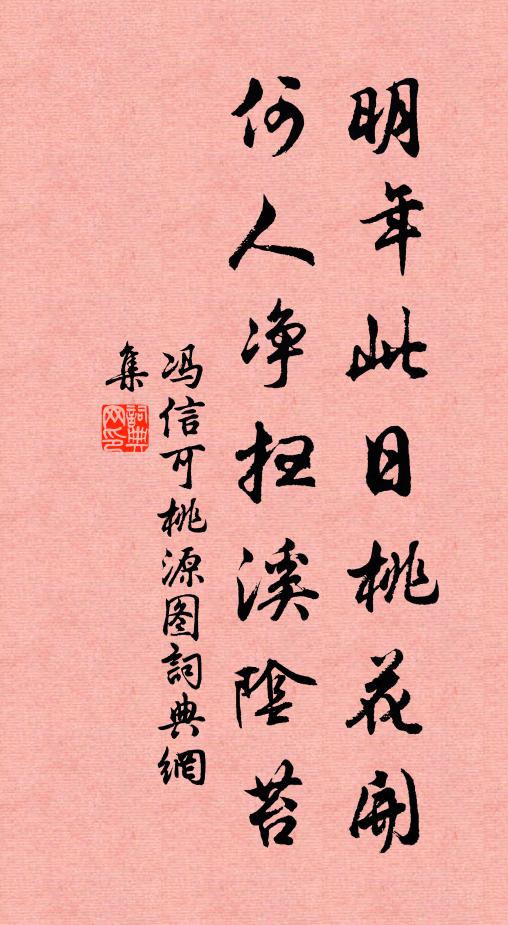 明年此日桃花開
何人净扫溪陰苔
冯信可桃源图詞典網
集
詞典网印